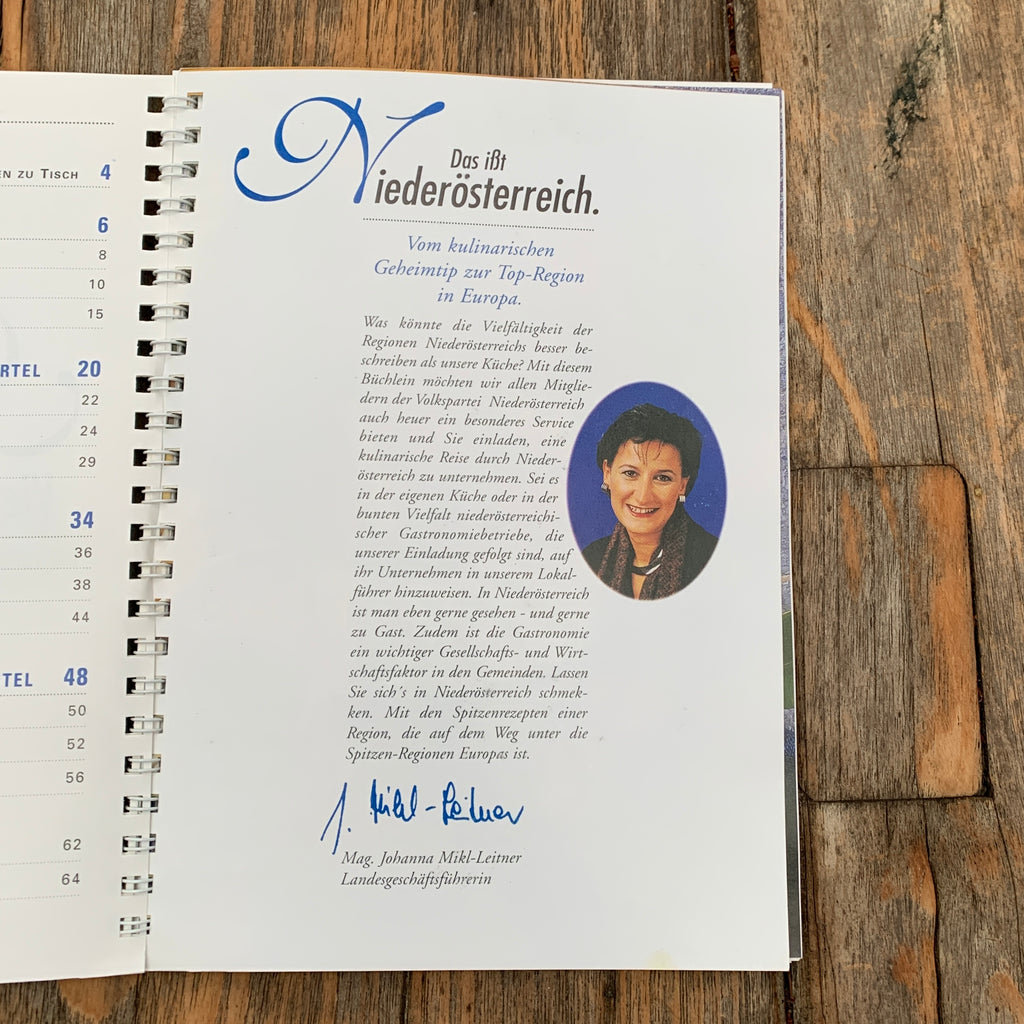 EN ZU TISCH 4
6
8
10
15
RTEL 20
22
24
29
34
36
38
44
TEL 48
50
52
56
62
64
Das ißt
Niederösterreich.
Vom kulinarischen
Geheimtip zur Top-Region
in Europa.
Was könnte die Vielfältigkeit der
Regionen Niederösterreichs besser be-
schreiben als unsere Küche? Mit diesem
Büchlein möchten wir allen Mitglie-
dern der Volkspartei Niederösterreich
auch heuer ein besonderes Service
bieten und Sie einladen, eine
kulinarische Reise durch Nieder-
österreich zu unternehmen. Sei es
in der eigenen Küche oder in der
bunten Vielfalt niederösterreichi-
scher Gastronomiebetriebe, die
unserer Einladung gefolgt sind, auf
ihr Unternehmen in unserem Lokal-
führer hinzuweisen. In Niederösterreich
ist man eben gerne gesehen - und gerne
zu Gast. Zudem ist die Gastronomie
ein wichtiger Gesellschafts- und Wirt-
schaftsfaktor in den Gemeinden. Lassen
Sie sich´s in Niederösterreich schmek-
ken. Mit den Spitzenrezepten einer
Region, die auf dem Weg unter die
Spitzen-Regionen Europas ist.
J. Mikl-Leitner
Mag. Johanna Mikl-Leitner
Landesgeschäftsführerin